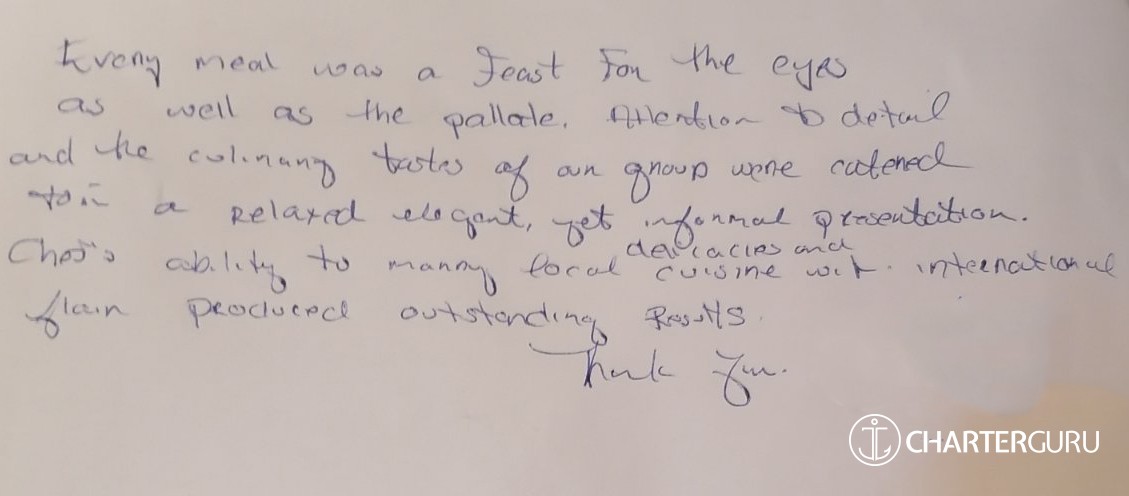 Every meal was a Feast For the eyes
as well as the pallate. Attention to detail
and the culinary tastes of our group were catered
to in a Relaxed elegant, yet informal presentation.
Chef's ability to marry local delicacies and cuisine with international
flair produced outstanding Results.
Thank You.
CHARTERGURU